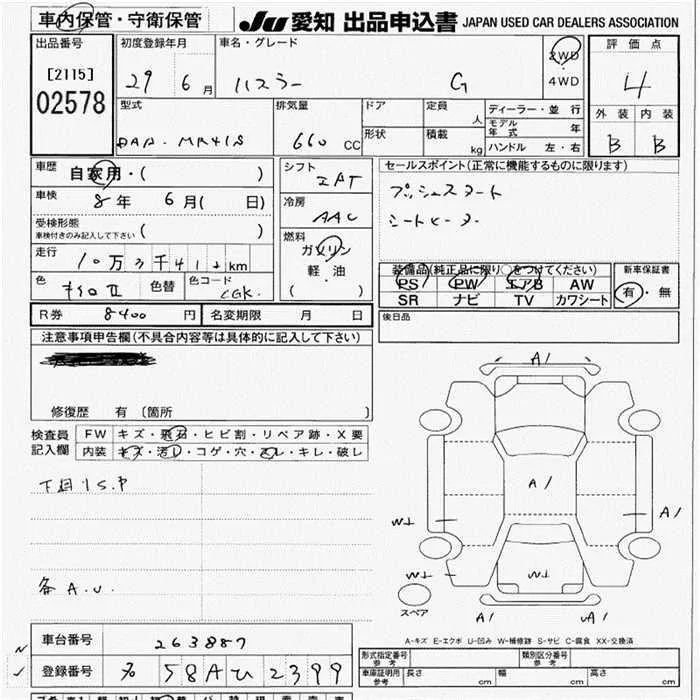 車内保管・守衛保管
JU 愛知 出品申込書 JAPAN USED CAR DEALERS ASSOCIATION
出品番号 [2115] 02578
初度登録年月 29 6月
車名・グレード ハスラー G
2WD
4WD
評価点 4
外装 内装
B B
型式 DAA-MR41S
排気量 660 CC
ドア
形状
定員 人
積載 kg
ディーラー・並行
モデル年式 年
ハンドル 左・右
車歴 自家用・( )
車検 8年 6月( 日)
受検形態
車検付きのみ記入して下さい ( )
走行 10万3千412km
色 キイロII 色替
色コード CGK.
R券 8400円
名変期限 月 日
シフト IAT
冷房 AAC
燃料
ガソリン
軽・油
( )
セールスポイント(正常に機能するものに限ります)
プッシュスタート
シートヒーター
装備品(純正品に限り○をつけてください)
PS PW エアB AW
SR ナビ TV カワシート
新車保証書
有・無
後日品
注意事項申告欄(不具合内容等は具体的に記入して下さい)
修復歴 有〔箇所 〕
検査員記入欄
FW キズ・飛石・ヒビ割・リペア跡・X要
内装 キズ・汚レ・コゲ・穴・スレ・キレ・破レ
下回りS.P
各A.U.
A1
A1
A1
W1
W1
W1
A1
UA1
スペア
A-キズ E-エクボ U-凹み W-補修跡 S-サビ C-腐食 XX-交換済
車台番号 263887
登録番号 58A ひ 2399
形式指定番号 参考
類別区分番号 参考
車庫証明用 参考 長さ cm 幅 cm 高さ cm